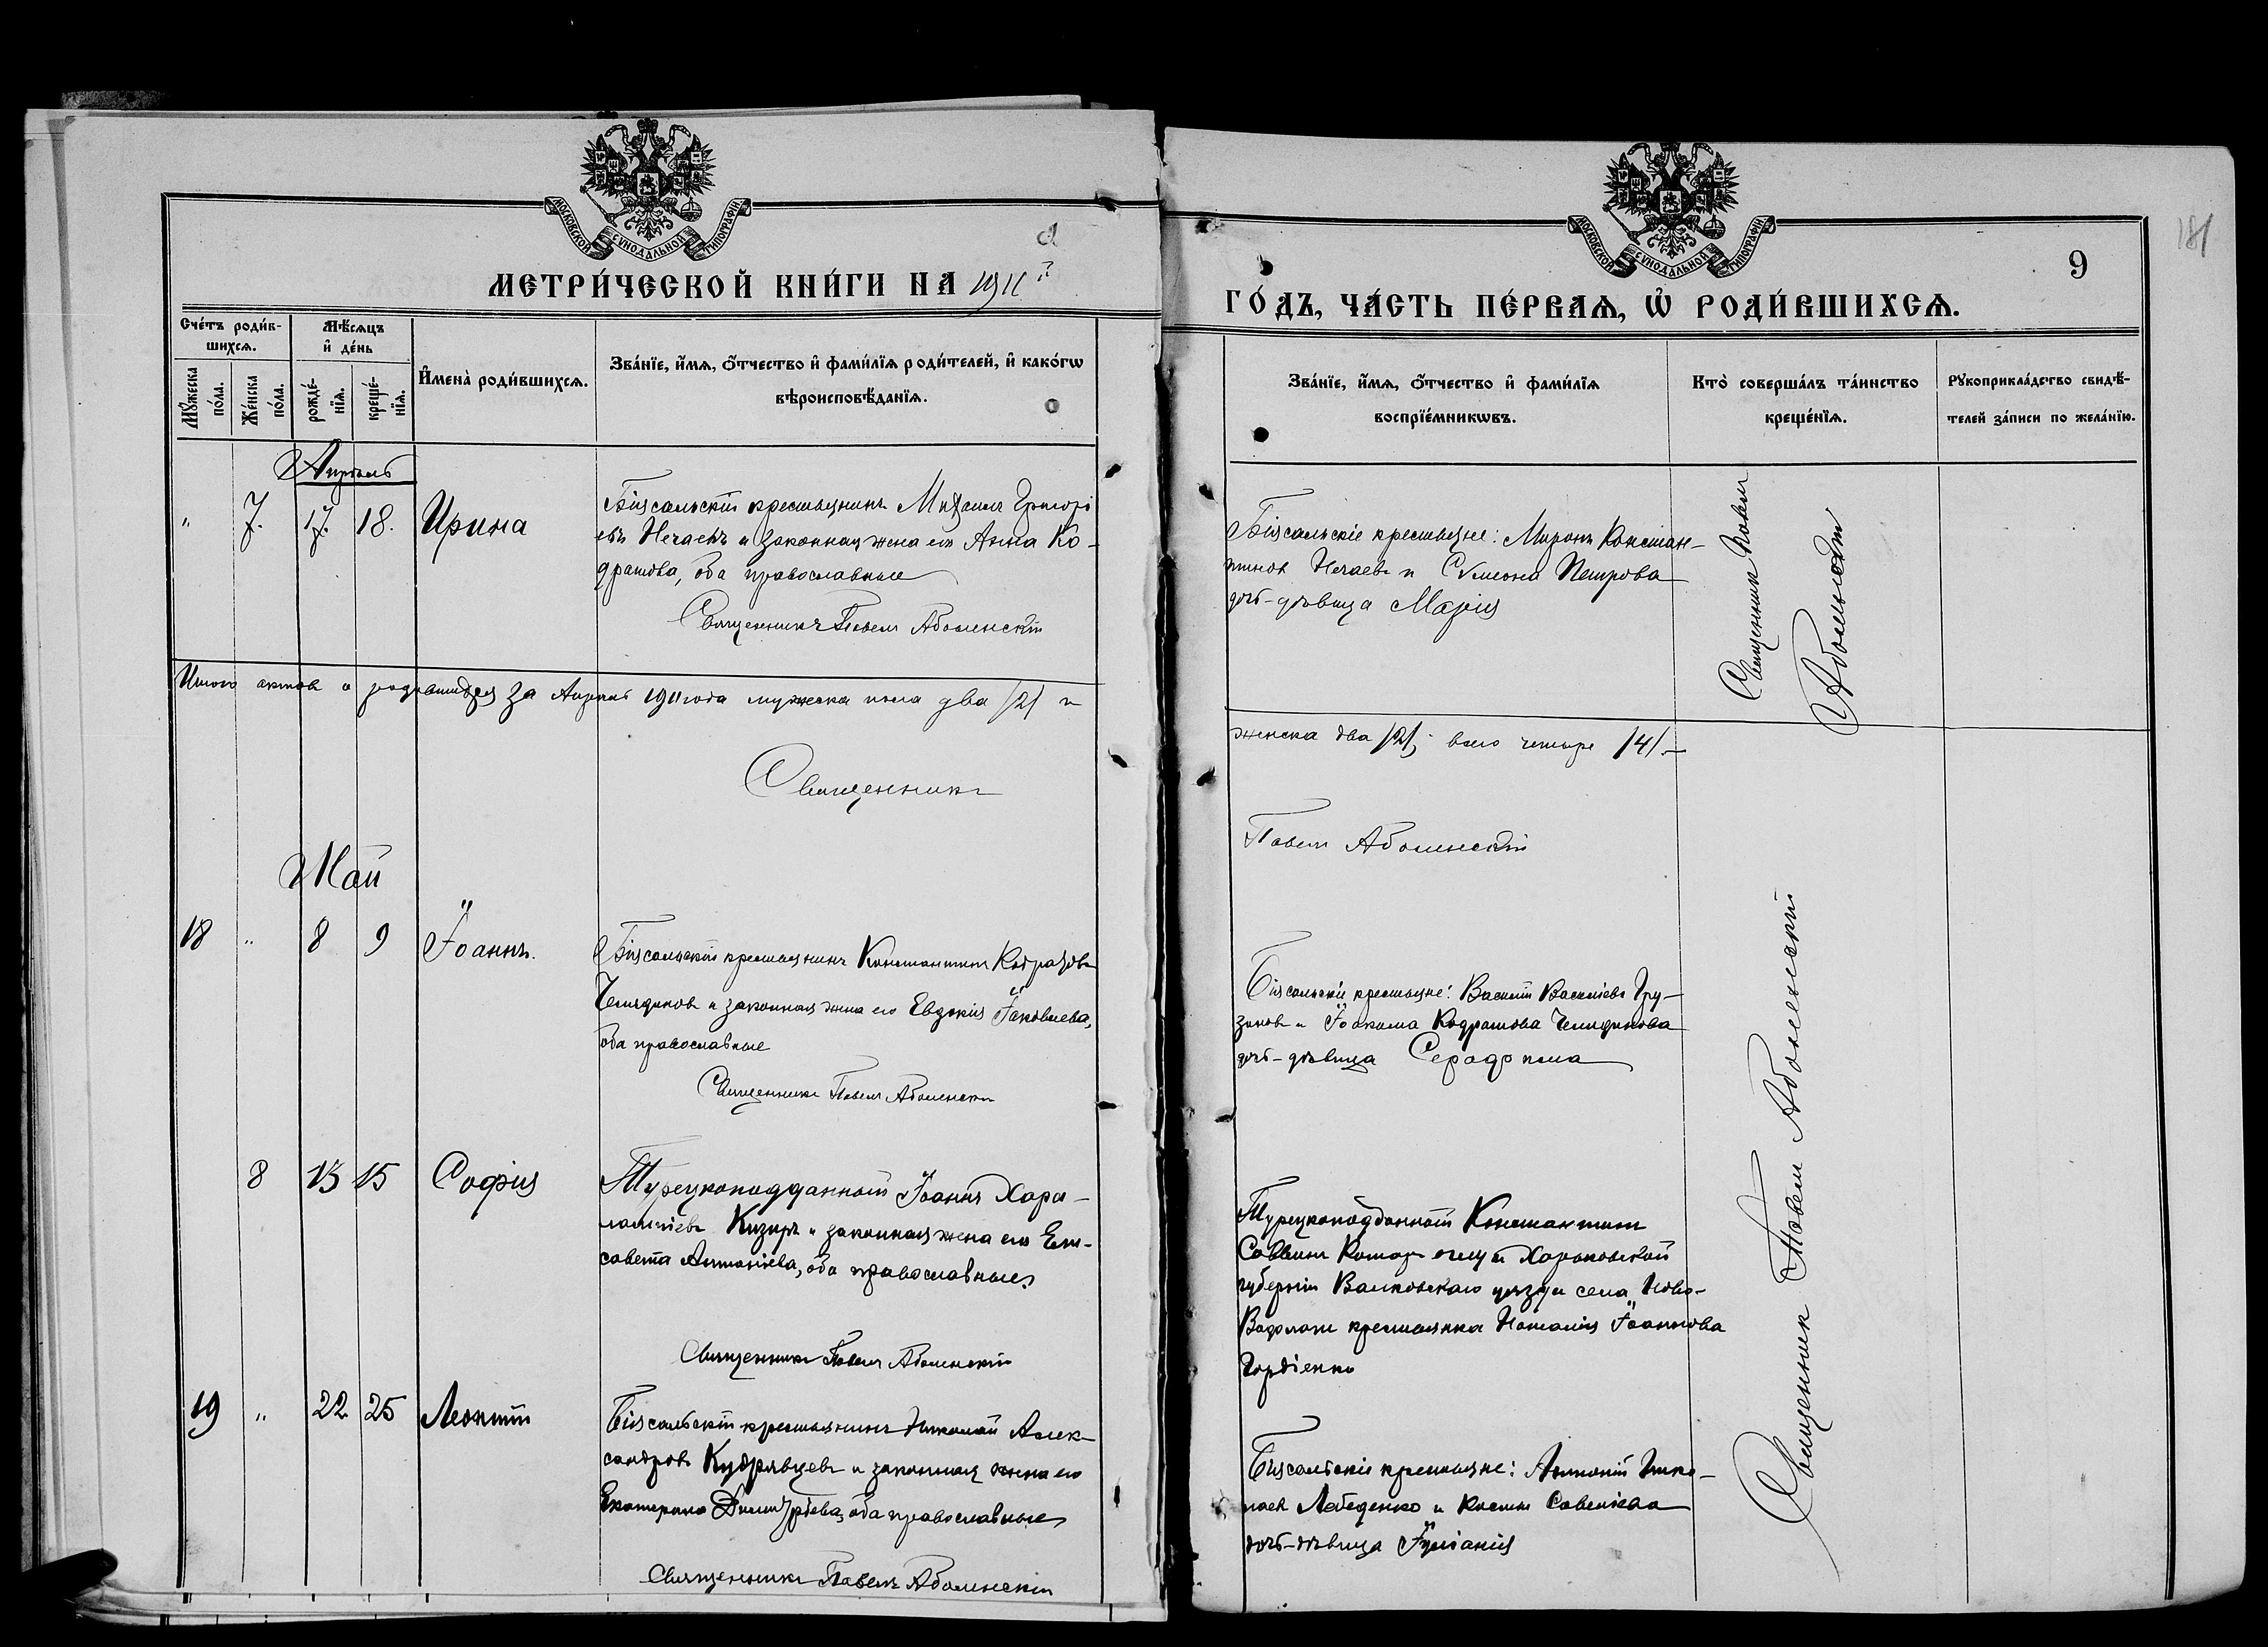 МОСКОВСКОЙ СѴНОДАЛЬНОЙ ТИПОГРАФІИ
МЕТРИ́ЧЕСКОЙ КНИ́ГИ НА 1911й
Сче́тъ роди́в-
шихсѧ.
Мѣ́сѧцъ
и҆ де́нь
Мꙋ́жеска
по́ла.
Же́нска
по́ла.
рожде́-
нїѧ.
креще́-
нїѧ.
И҆мена̀ роди́вшихсѧ.
Зва́нїе, и҆́мѧ, ѻ҆́тчество и҆ фами́лїѧ роди́телей, и҆ како́гѡ
вѣроисповѣ́данїѧ.
Апрѣль
" 7. 17. 18. Ирина
Біясальскій крестьянинъ Михаилъ Григорі
евъ Нечаевъ и законная жена его Анна Ко-
дратова, оба православные
Священникъ Павелъ Аболенскій
Итого актовъ о родившихся за Апрѣль 1911 года мужеска пола два /2/ и
Священникъ
Май
18 " 8 9 Іоаннъ.
Біясальскій крестьянинъ Константинъ Кодратовъ
Челядиновъ и законная жена его Евдокія Іаковлева,
оба православные
Священникъ Павелъ Аболенскій
8 13 15 Софія
Турецкоподданный Іоаннъ Хара-
лампіевъ Кизиръ и законная жена его Ели-
савета Антоніева, оба православные
Священникъ Павелъ Аболенскій
19 " 22 25 Леонтій
Біясальскій крестьянинъ Николай Алек-
сандровъ Кудрявцевъ и законная жена его
Екатерина Димитріева, оба православные
Священникъ Павелъ Аболенскій
181
МОСКОВСКОЙ СѴНОДАЛЬНОЙ ТИПОГРАФІИ
9
ГО́ДЪ, ЧА́СТЬ ПЕ́РВАѦ, Ѡ҆ РОДИ́ВШИХСѦ.
Зва́нїе, и҆́мѧ, ѻ҆́тчество и҆ фами́лїѧ
воспрїе́мникѡвъ.
Кто̀ соверша́лъ та́инство
креще́нїѧ.
Рꙋкоприкла́дство свидѣ́-
телей за́писи по жела́нїю.
Біясальскіе крестьяне: Миронъ Констан-
тиновъ Нечаевъ и Сѵмеона Петрова
дочь-дѣвица Марія
Священникъ Павелъ
Аболенскій
женска два /2/; всего четыре /4/.—
Павелъ Аболенскій
Біясальскіе крестьяне: Василій Васильевъ Гру-
зиновъ и Іоакима Кодратова Челядинова
дочь-дѣвица Серафима
Турецкоподданный Константинъ
Саввинъ и Харьковской
губерніи Валковскаго уѣзда села Ново-
Водолаги крестьянка Наталія Іоаннова
Гордіенко
Біясальскіе крестьяне: Антоній Нико-
лаевъ Лебеденко и Савеліева
дочь-дѣвица Іуліанія
Священникъ Павелъ Аболенскій